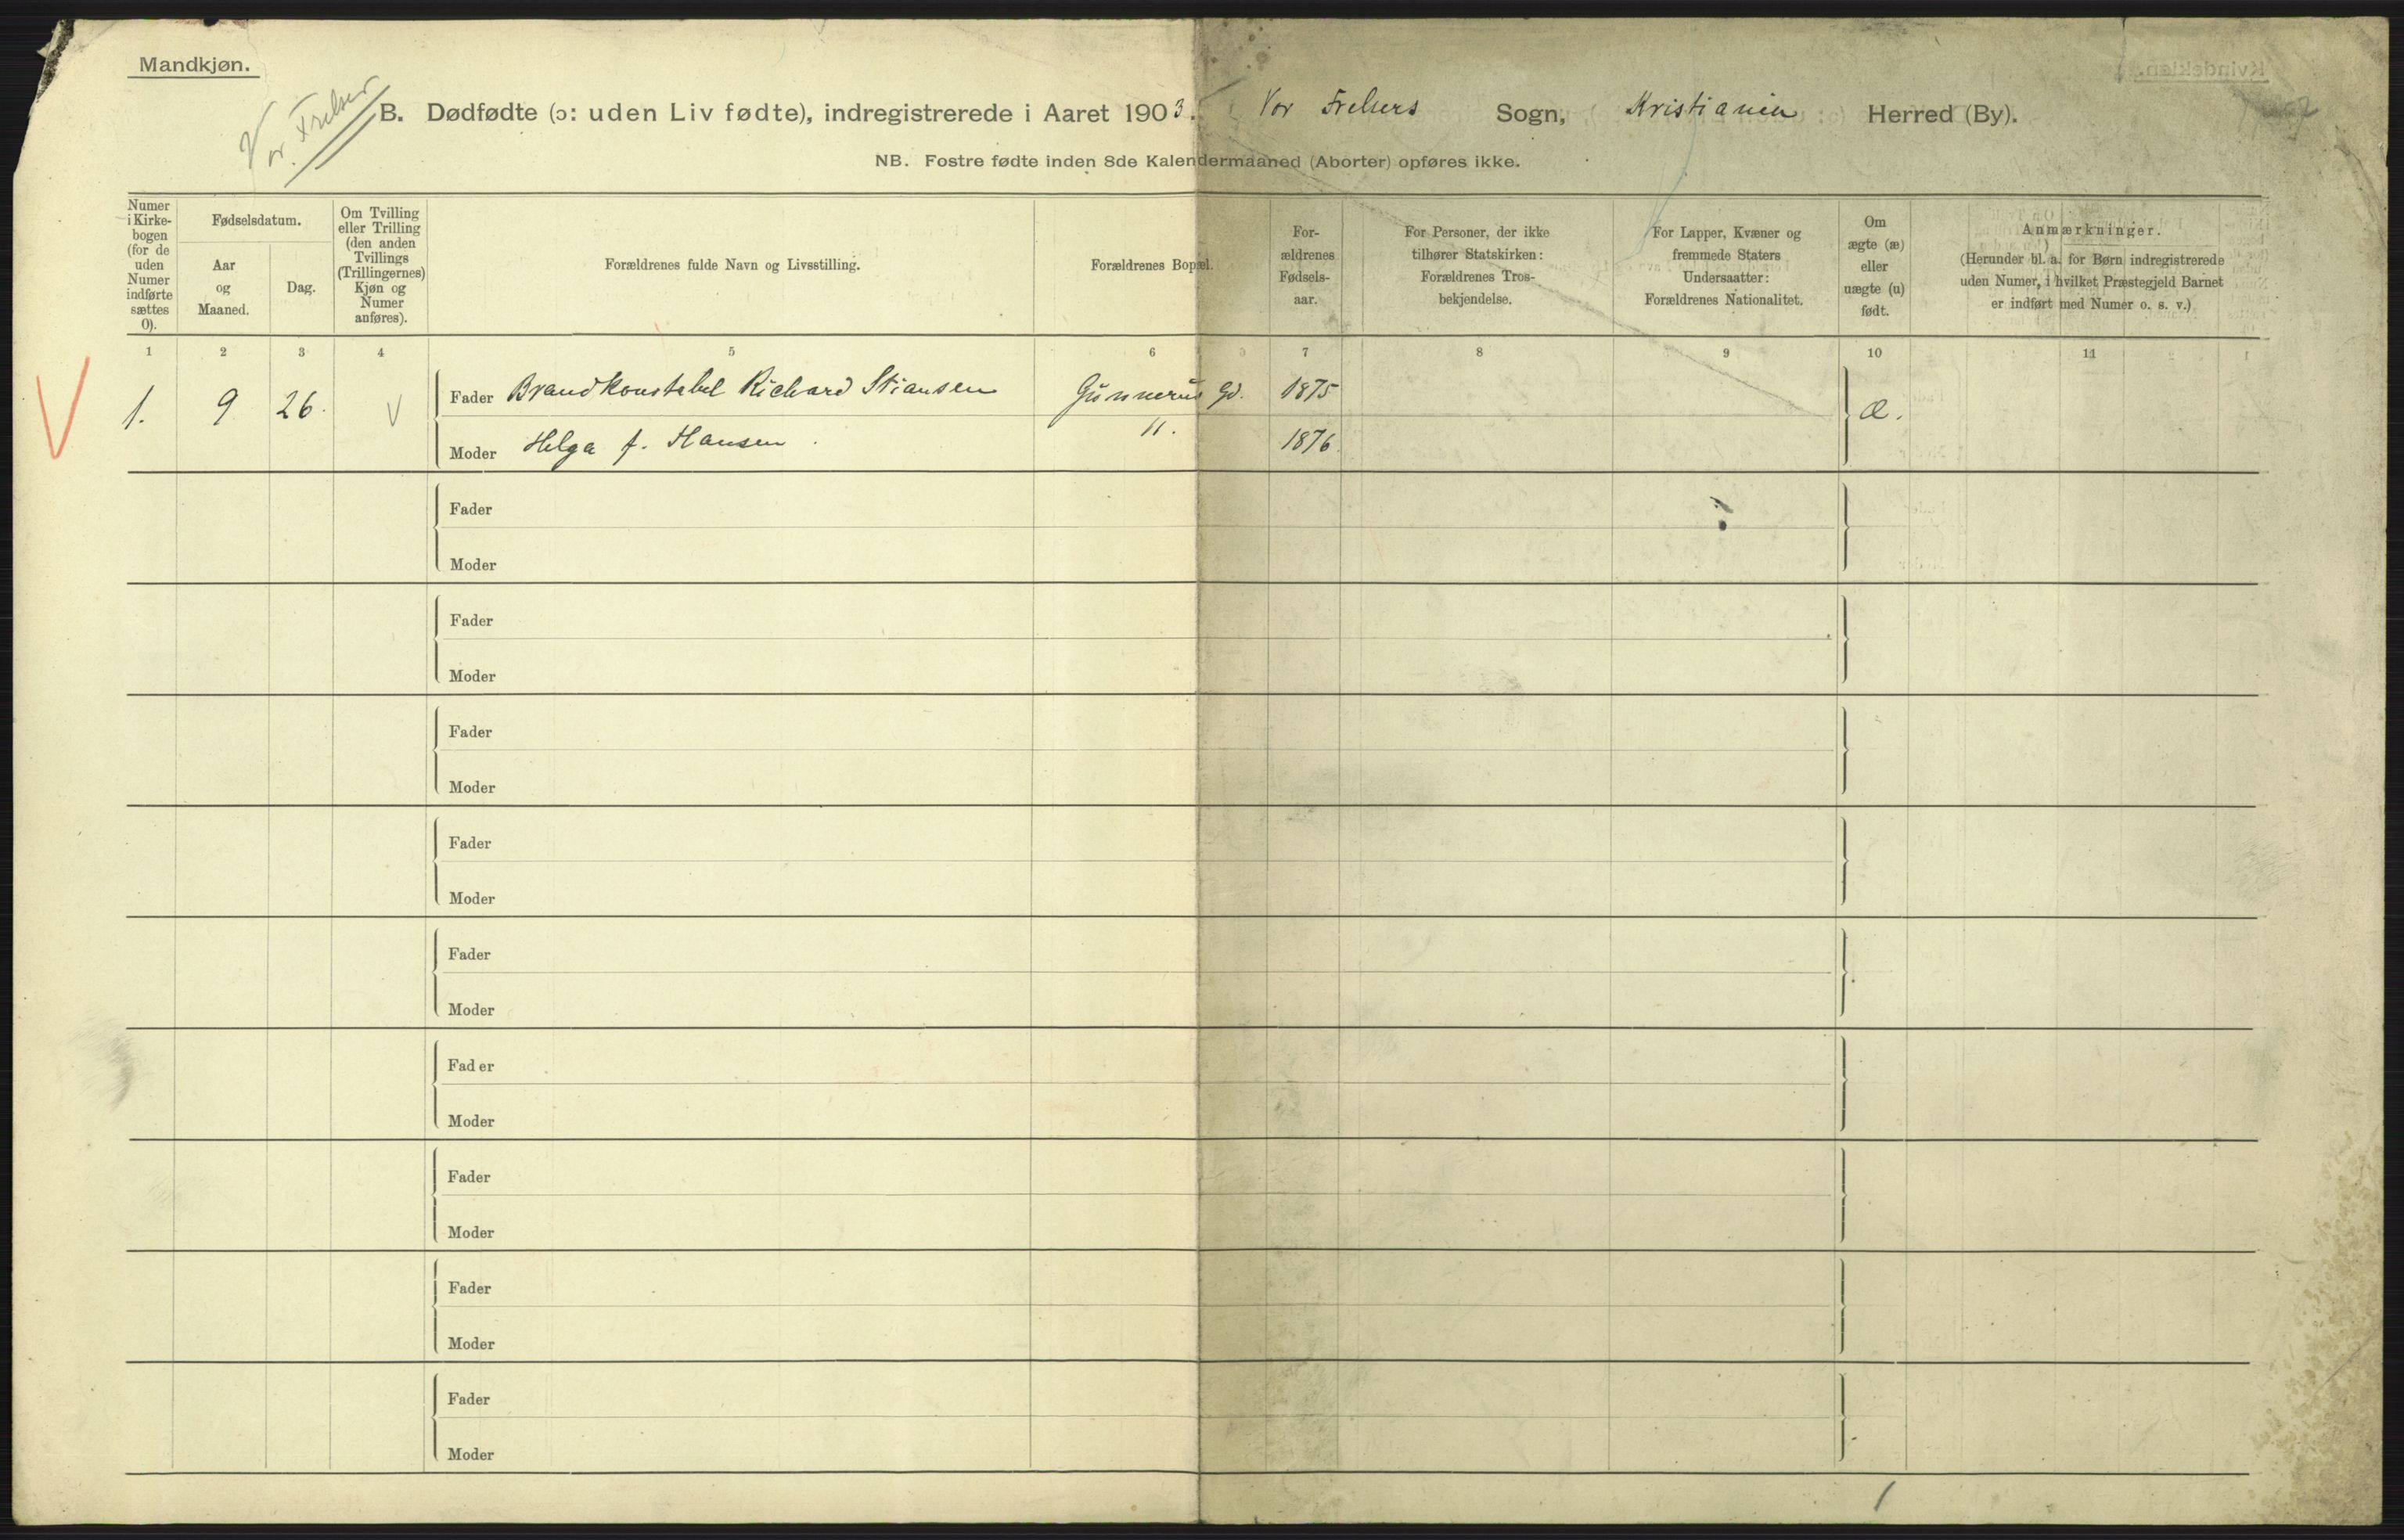 Mandkjøn.
Vor Frelser
B. Dødfødte (ɔ: uden Liv fødte), indregistrerede i Aaret 1903. Vor Frelsers Sogn, Kristiania Herred (By).
NB. Fostre fødte inden 8de Kalendermaaned (Aborter) opføres ikke.
Numer
i Kirke-
bogen
(for de
uden
Numer
indførte
sættes
0).
Fødselsdatum.
Aar
og
Maaned.
Dag.
Om Tvilling
eller Trilling
(den anden
Tvillings
(Trillingernes)
Kjøn og
Numer
anføres).
Forældrenes fulde Navn og Livsstilling.
Forældrenes Bopæl.
For-
ældrenes
Fødsels-
aar.
For Personer, der ikke
tilhører Statskirken:
Forældrenes Tros-
bekjendelse.
For Lapper, Kvæner og
fremmede Staters
Undersaatter:
Forældrenes Nationalitet.
Om
ægte (æ)
eller
uægte (u)
født.
Anmærkninger.
(Herunder bl. a. for Børn indregistrerede
uden Numer, i hvilket Præstegjeld Barnet
er indført med Numer o. s. v.)
1 2 3 4 5 6 7 8 9 10 11
1. 9 26. Fader Brandkonstabel Richard Stiansen Gunnerus Gd. 1875 æ.
11.
Moder Helga f. Hansen. 1876
Fader
Moder
Fader
Moder
Fader
Moder
Fader
Moder
Fader
Moder
Fader
Moder
Fader
Moder
Fader
Moder
Fader
Moder
1